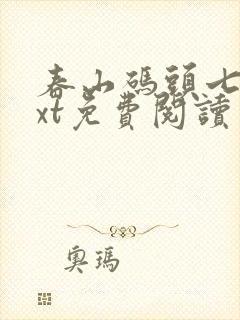 春山碼頭七
xt免費閱讀
奧瑪